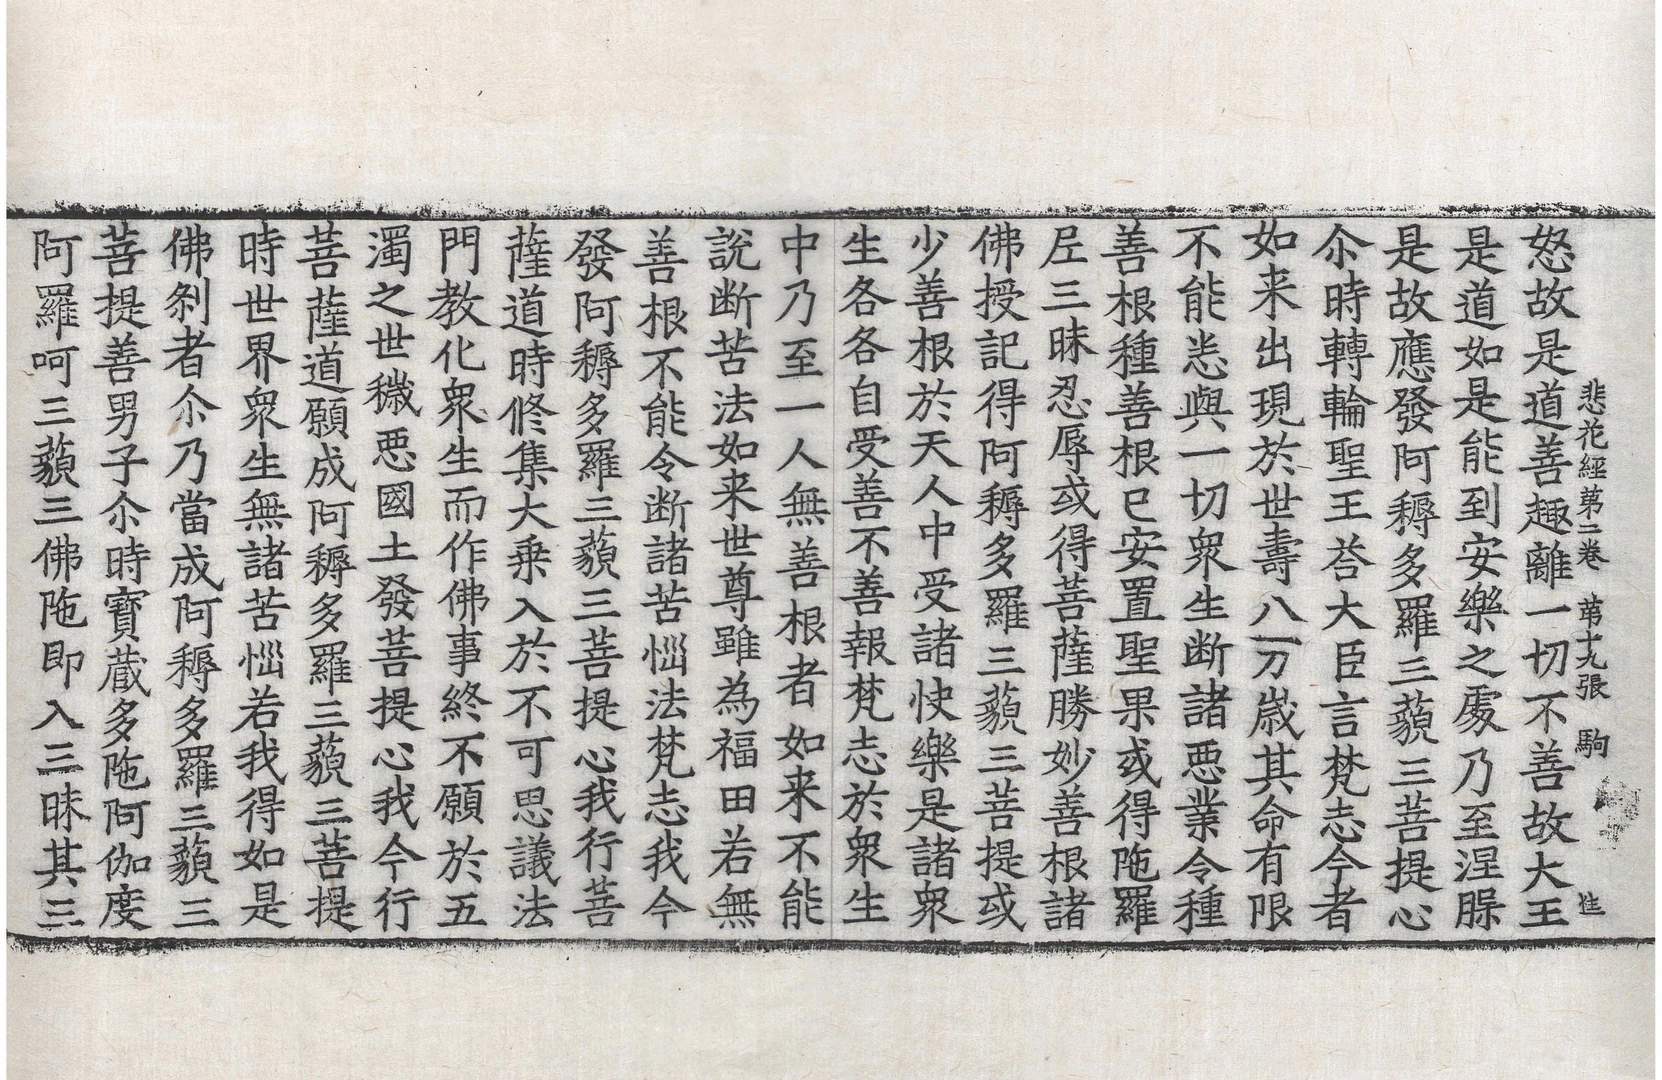 悲花經第二卷 第十九張 駒
怒故是道善趣離一切不善故大王
是道如是能到安樂之處乃至涅槃
是故應發阿耨多羅三藐三菩提心
尒時轉輪聖王荅大臣言梵志今者
如来出現於世壽八万歲其命有限
不能悉與一切衆生断諸惡業令種
善根種善根已安置聖果或得陁羅
尼三昧忍辱或得菩薩勝妙善根諸
佛授記得阿耨多羅三藐三菩提或
少善根於天人中受諸快樂是諸衆
生各各自受善不善報梵志於衆生
中乃至一人無善根者如来不能
說断苦法如来世尊雖為福田若無
善根不能令断諸苦惱法梵志我今
發阿耨多羅三藐三菩提心我行菩
薩道時修集大乗入於不可思議法
門教化衆生而作佛事終不願於五
濁之世穢惡國土發菩提心我今行
菩薩道願成阿耨多羅三藐三菩提
時世界衆生無諸苦惱若我得如是
佛刹者尒乃當成阿耨多羅三藐三
菩提善男子尒時寶藏多陁阿伽度
阿羅呵三藐三佛陁即入三昧其三